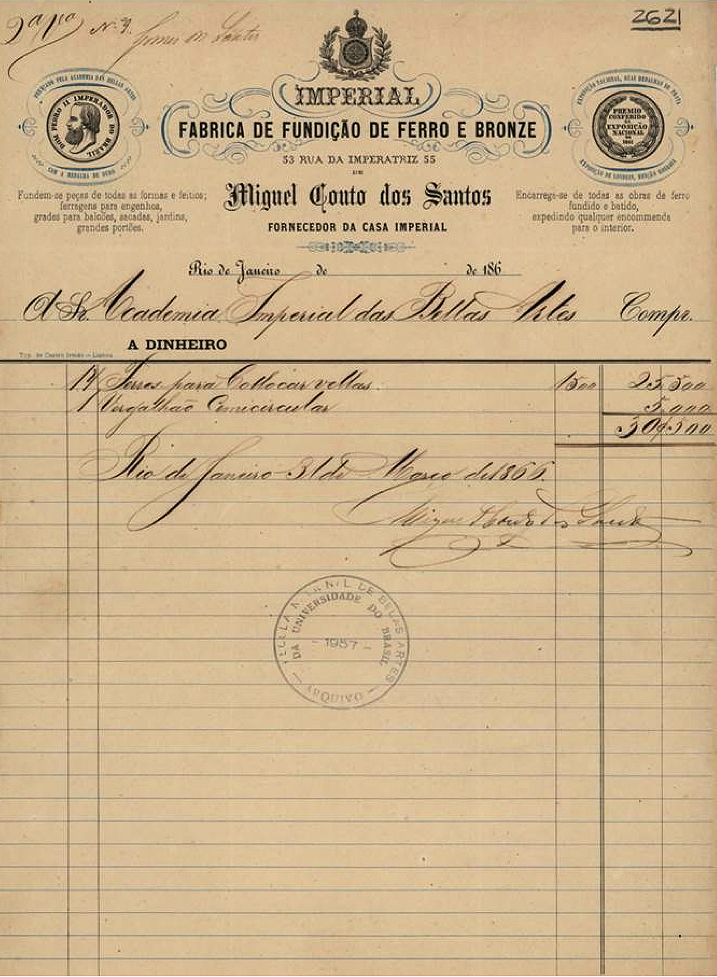 2ª 1ª Nº 9.
2621
IMPERIAL
FABRICA DE FUNDIÇÃO DE FERRO E BRONZE
53 RUA DA IMPERATRIZ 55
DE
Miguel Couto dos Santos
FORNECEDOR DA CASA IMPERIAL
PREMIADO PELA ACADEMIA DAS BELLAS ARTES
DOM PEDRO II IMPERADOR DO BRASIL
COM A MEDALHA DE OURO
Fundem-se peças de todas as formas e feitios;
ferragens para engenhos,
grades para balcões, sacadas, jardins,
grandes portões.
EXPOSIÇÃO NACIONAL, DUAS MEDALHAS DE PRATA
PREMIO
CONFERIDO
NA
EXPOSIÇÃO
NACIONAL
DE
1861
EXPOSIÇÃO DE LONDRES, MENÇÃO HONROSA
Encarrega-se de todas as obras de ferro
fundido e batido,
expedindo qualquer encommenda
para o interior.
Rio de Janeiro de de 186
A Sr. Academia Imperial das Bellas Artes Compr.
A DINHEIRO
Typ. de Castro Irmão — Lisboa
17 Ferros para Collocar vellas. 1500 25.500
1 Vergalhão Cemicircular 5.000
30$500
Rio de Janeiro 31 de Março de 1866
Miguel Couto dos Santos
DE BELAS ARTES
DA UNIVERSIDADE DO BRASIL
- 1957 -
ARQUIVO